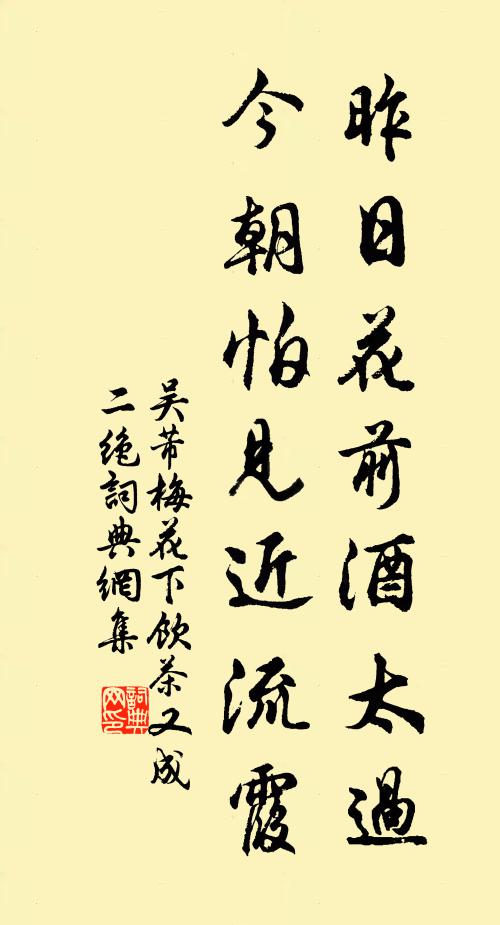 昨日花前酒太過
今朝怕見近流霞
吴芾梅花下飲茶又成
二絶詞典網集
詞典网印